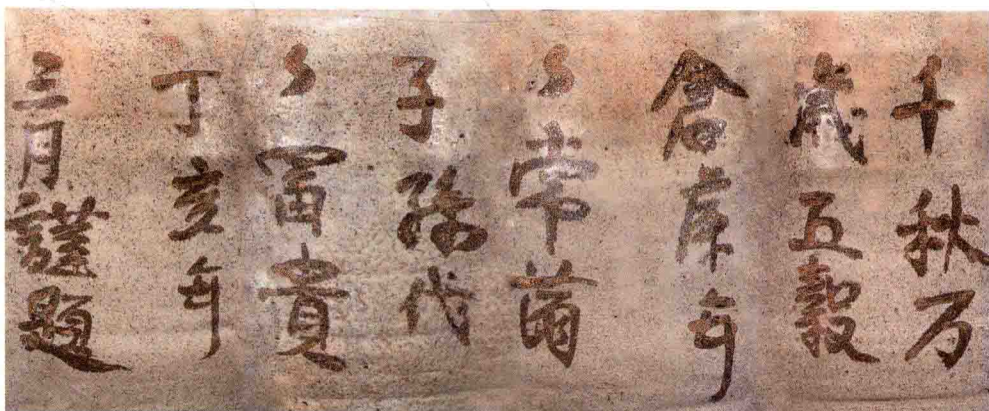 千秋万
歲五穀
倉庫年
々常㒼
子孫代
々冨貴
丁亥年
三月謹題